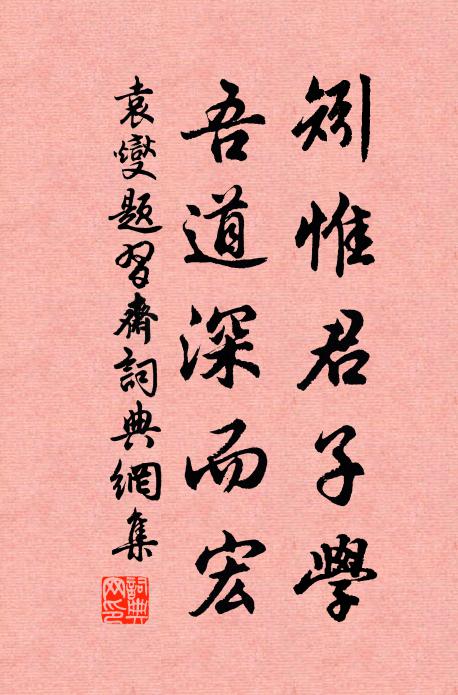 矧惟君子學
吾道深而宏
袁燮題習齋詞典網集
詞典網印